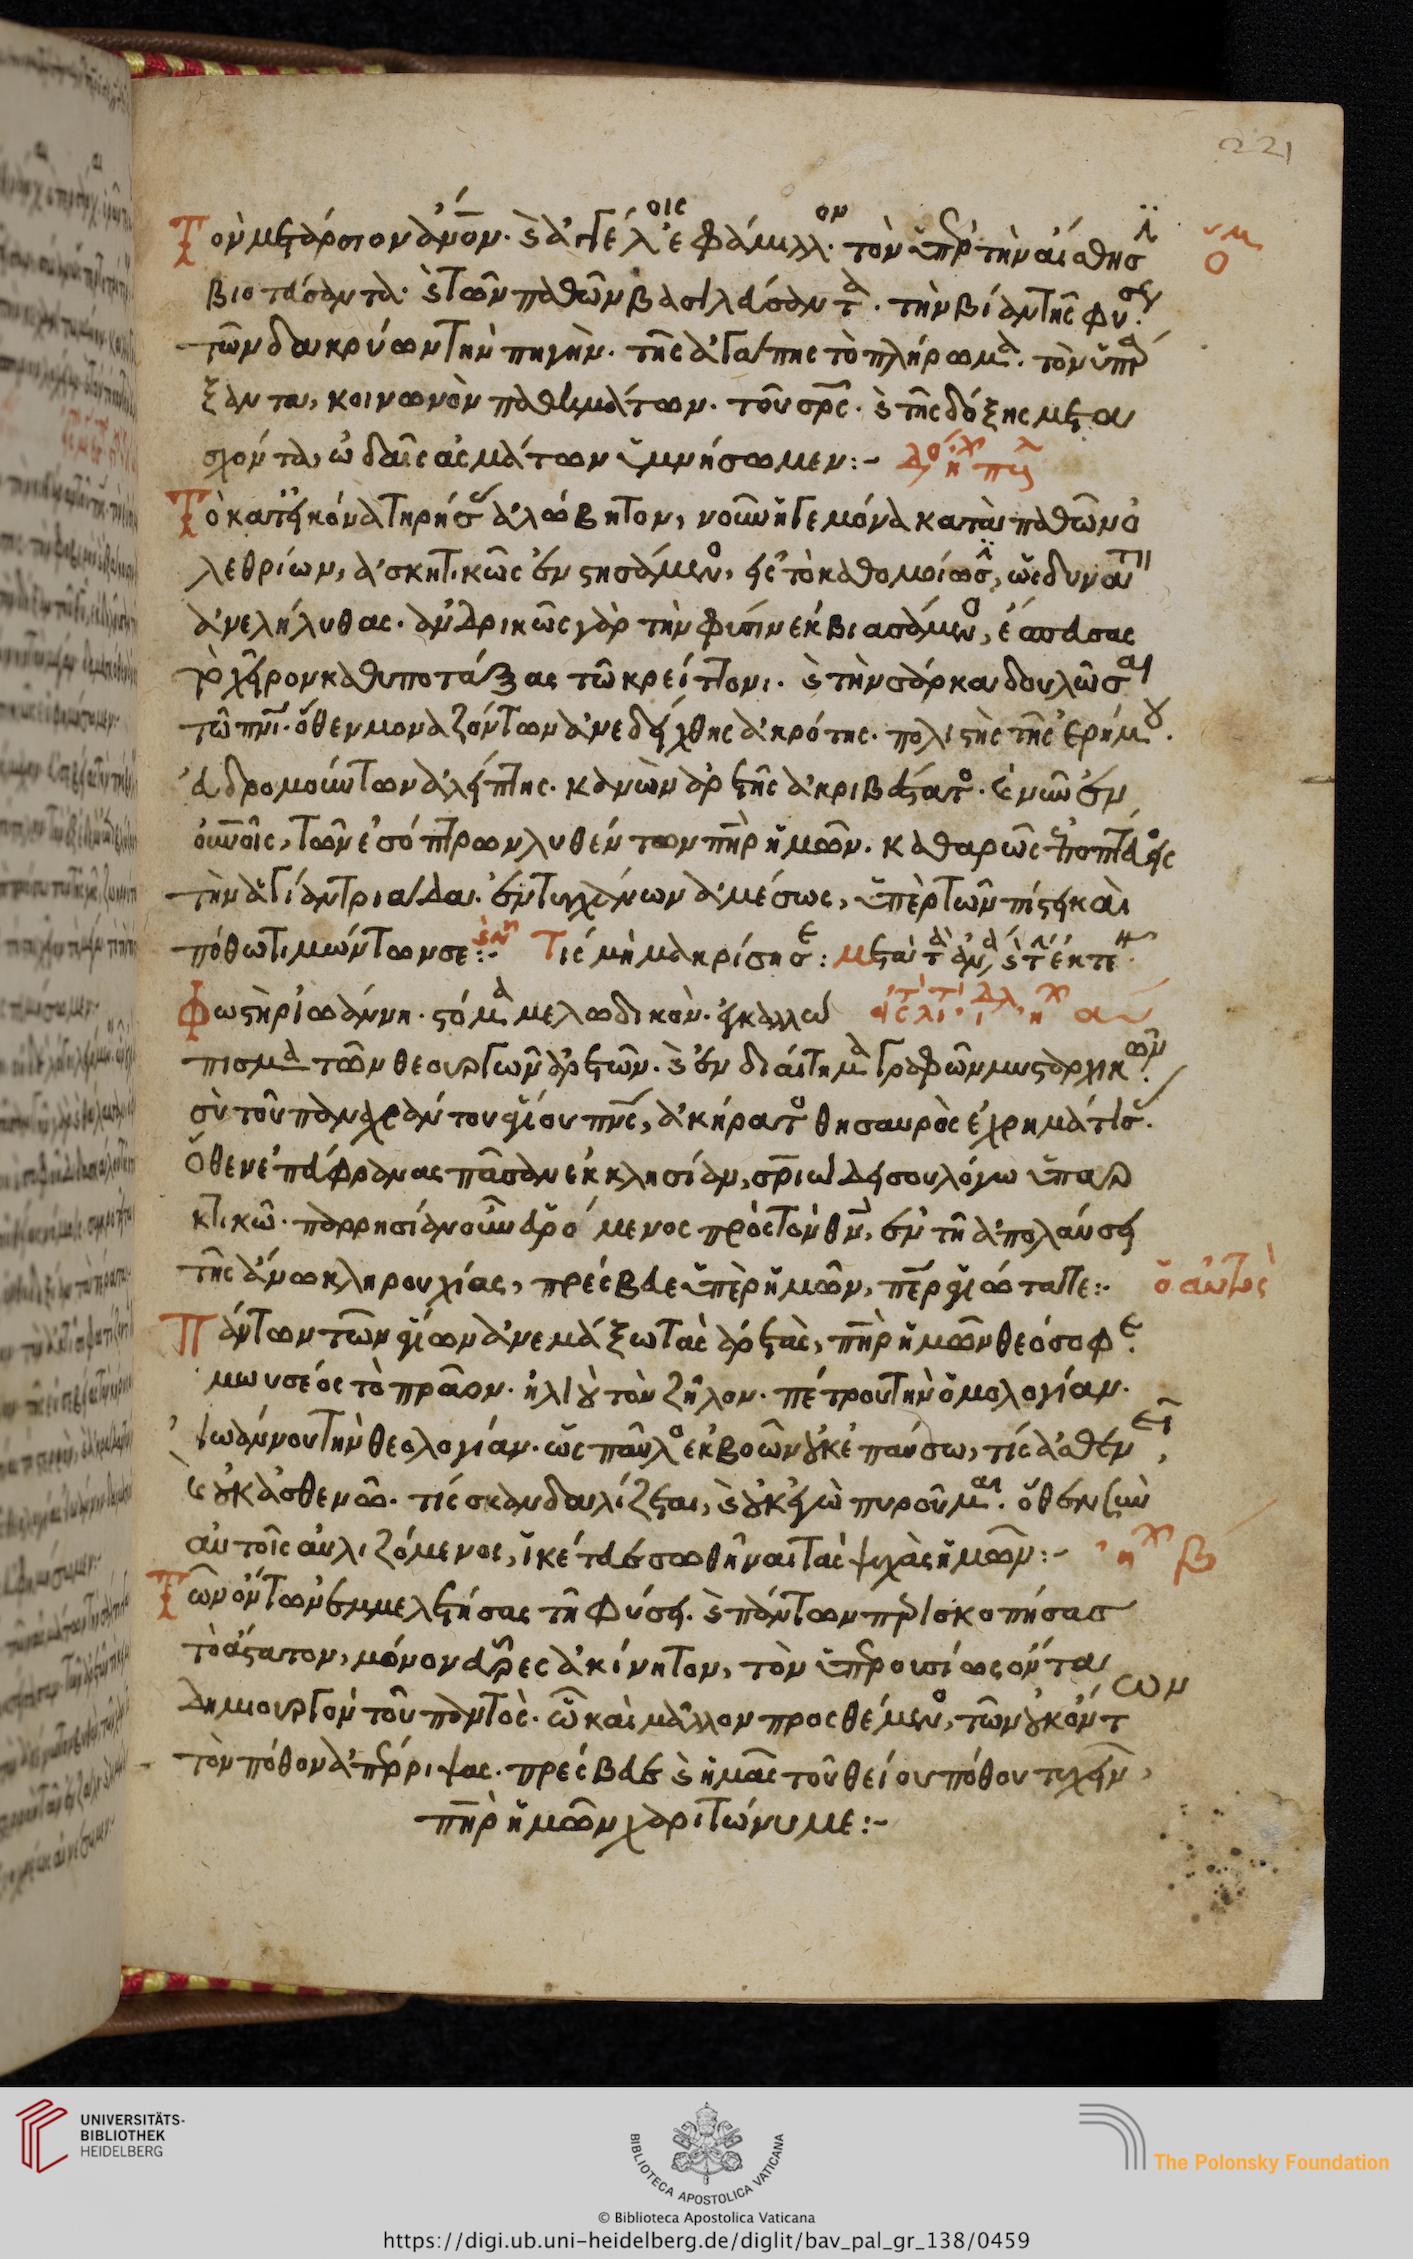 221
Τὸν μετάρσιον ἄνον· ϗ ἀγγέλοις ἐφάμιλλον· τὸν ὑπὲρ τὴν αἴσθησ
βιοτεύσαντα· ϗ τῶν παθῶν βασιλεύσαντα· τὴν βίαν τῆς φύσεως·
τῶν δακρύων τὴν πηγήν· τῆς ἀγάπης τὸ πλήρωμα· τὸν ὑπάρ
ξαντα, κοινωνὸν παθημάτων· τοῦ σρς· ϗ τῆς δόξης μετα
σχόντα, ὠδαῖς ἀσμάτων ὑμνήσωμεν:-
Τὸ κατ εἰκόνα τηρήσας ἀλώβητον, νοῦν ἡγεμόνα κατὰ παθῶν ὀ
λεθρίων, ἀσκητικῶς ἐνστησάμενος, εἰς τὸ καθ ομοίωσ, ὡς δυνατὸν
ἀνελήλυθας· ἀνδρικῶς γὰρ τὴν φύσιν ἐκβιασάμενος, ἔσπευσας
τὸ χεῖρον καθυποτάξας τῶ κρείττονι· ϗ τὴν σάρκα δουλῶσαι
τῶ πνι· ὅθεν μοναζόντων ἀνεδείχθης ἀκρότης· πολιστὴς τῆς ἐρήμου·
εὐδρομούντων ἀλείπτης· κανὼν ἀρετῆς ἀκριβέστατος· ϗ νῦν ἐν
οὐνοῖς, τῶν ἐσόπτρων λυθέντων πηρ ἡμῶν· καθαρῶς ἐποπτεύεις
τὴν ἁγίαν τριάδα· ἐντυγχάνων ἀμέσως, ὑπὲρ τῶν πίστει καὶ
πόθω τιμώντων σε:- Τίς μὴ μακρίσησε: μετὰ τ
Φωστὴρ ἰωάννη· στόμα μελωδικὸν· ἐκαλλώ
πισμα τῶν θεουργῶν ἀρετῶν· ϗ ἐνδιαίτημα γραφῶν μυσταρχικῶν·
σὺ τοῦ παναχράντου ἁγίου πνς, ἀκήρατος θησαυρὸς ἐχρημάτισας·
ὅθεν ἐπεύφρανας πᾶσαν ἐκκλησίαν, σριώδει σου λόγω ὑπαρ
κτικῶ· παρρησίαν οὖν εὑρόμενος πρὸς τὸν θν, ἐν τῆ ἀπολαύσει
τῆς ἄνω κληρουχίας, πρέσβευε ὑπὲρ ἡμῶν, περ ἁγιώτατε:-
ὁ αὐτὸς
Πάντων τῶν ἁγίων ἀνεμάξω τὰς ἀρετὰς, πηρ ἡμῶν θεόσοφε·
μωυσέος τὸ πρᾶον· ἠλιοὺ τὸν ζῆλον· πέτρου τὴν ὁμολογίαν·
ἰωάννου τὴν θεολογίαν· ὡς παῦλος ἐκβοῶν οὐκ ἐπαύσω, τίς ἀσθενεῖ,
ϗ οὐκ ἀσθενῶ· τίς σκανδαλίζεται, ϗ οὐκ ἐγὼ πυροῦμαι· ὅθεν σὺν
αὐτοῖς αὐλιζόμενος, ἱκέτευε σωθῆναι τὰς ψυχὰς ἡμῶν:-
Τῶν ὄντων ἐμμελετήσας τῆ φύσει· ϗ πάντων περισκοπήσας
τὸ ἄστατον, μόνον εὗρες ἀκίνητον, τὸν ὑπερουσίως ὄντα
δημιουργὸν τοῦ παντὸς· ὧ καὶ μᾶλλον προσθέμενος, τῶν οὐκ ὄντων
τὸν πόθον ἀπέρριψας· πρέσβευε ϗ ἡμᾶς τοῦ θείου πόθου τυχεῖν,
πηρ ἡμῶν χαριτώνυμε:-
UNIVERSITÄTS-
BIBLIOTHEK
HEIDELBERG
BIBLIOTECA APOSTOLICA VATICANA
The Polonsky Foundation
© Biblioteca Apostolica Vaticana
https://digi.ub.uni-heidelberg.de/diglit/bav_pal_gr_138/0459